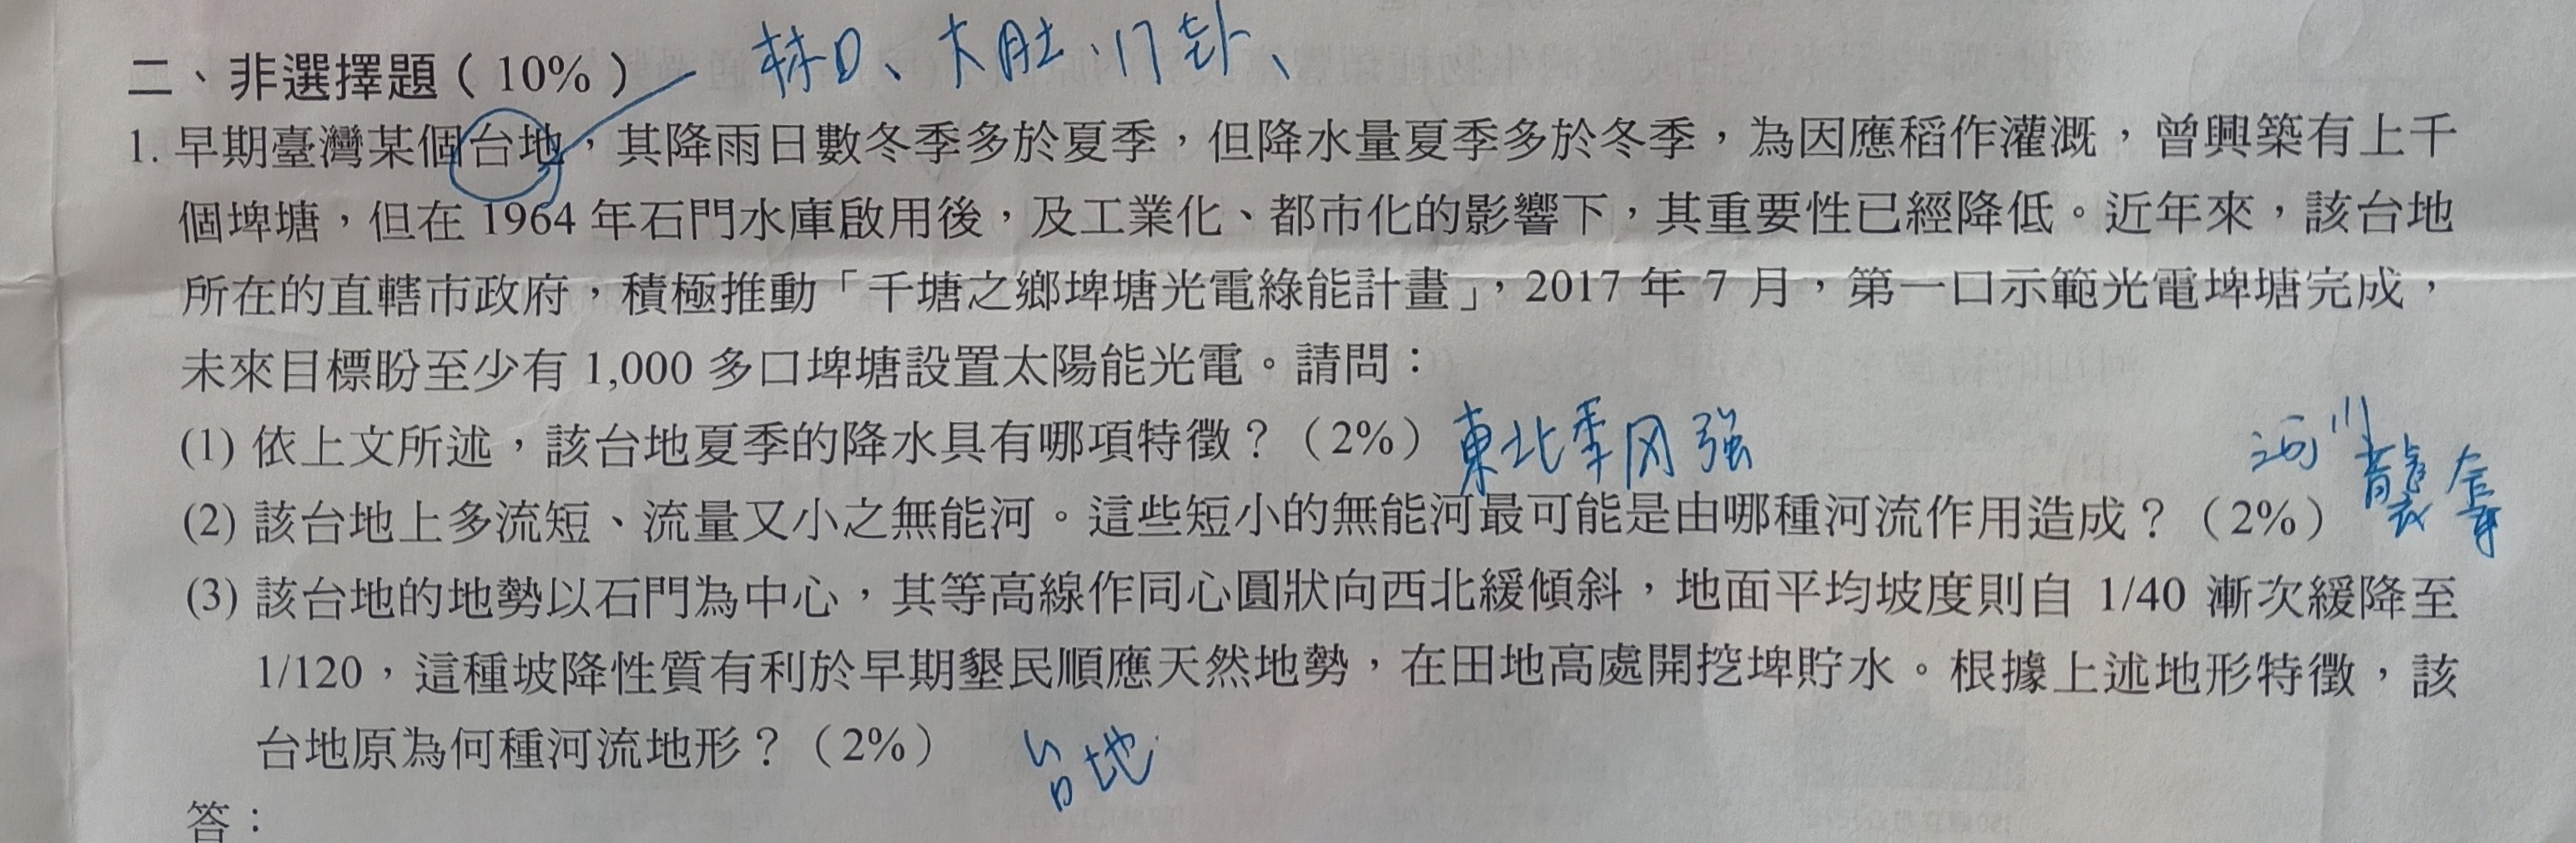 林口、大肚、八卦、
二、非選擇題(10%)
1. 早期臺灣某個台地,其降雨日數冬季多於夏季,但降水量夏季多於冬季,為因應稻作灌溉,曾興築有上千
個埤塘,但在 1964 年石門水庫啟用後,及工業化、都市化的影響下,其重要性已經降低。近年來,該台地
所在的直轄市政府,積極推動「千塘之鄉埤塘光電綠能計畫」,2017 年 7 月,第一口示範光電埤塘完成,
未來目標盼至少有 1,000 多口埤塘設置太陽能光電。請問:
(1) 依上文所述,該台地夏季的降水具有哪項特徵?(2%) 東北季风強
(2) 該台地上多流短、流量又小之無能河。這些短小的無能河最可能是由哪種河流作用造成?(2%) 河川襲奪
(3) 該台地的地勢以石門為中心,其等高線作同心圓狀向西北緩傾斜,地面平均坡度則自 1/40 漸次緩降至
1/120,這種坡降性質有利於早期墾民順應天然地勢,在田地高處開挖埤貯水。根據上述地形特徵,該
台地原為何種河流地形?(2%) 台地
答: